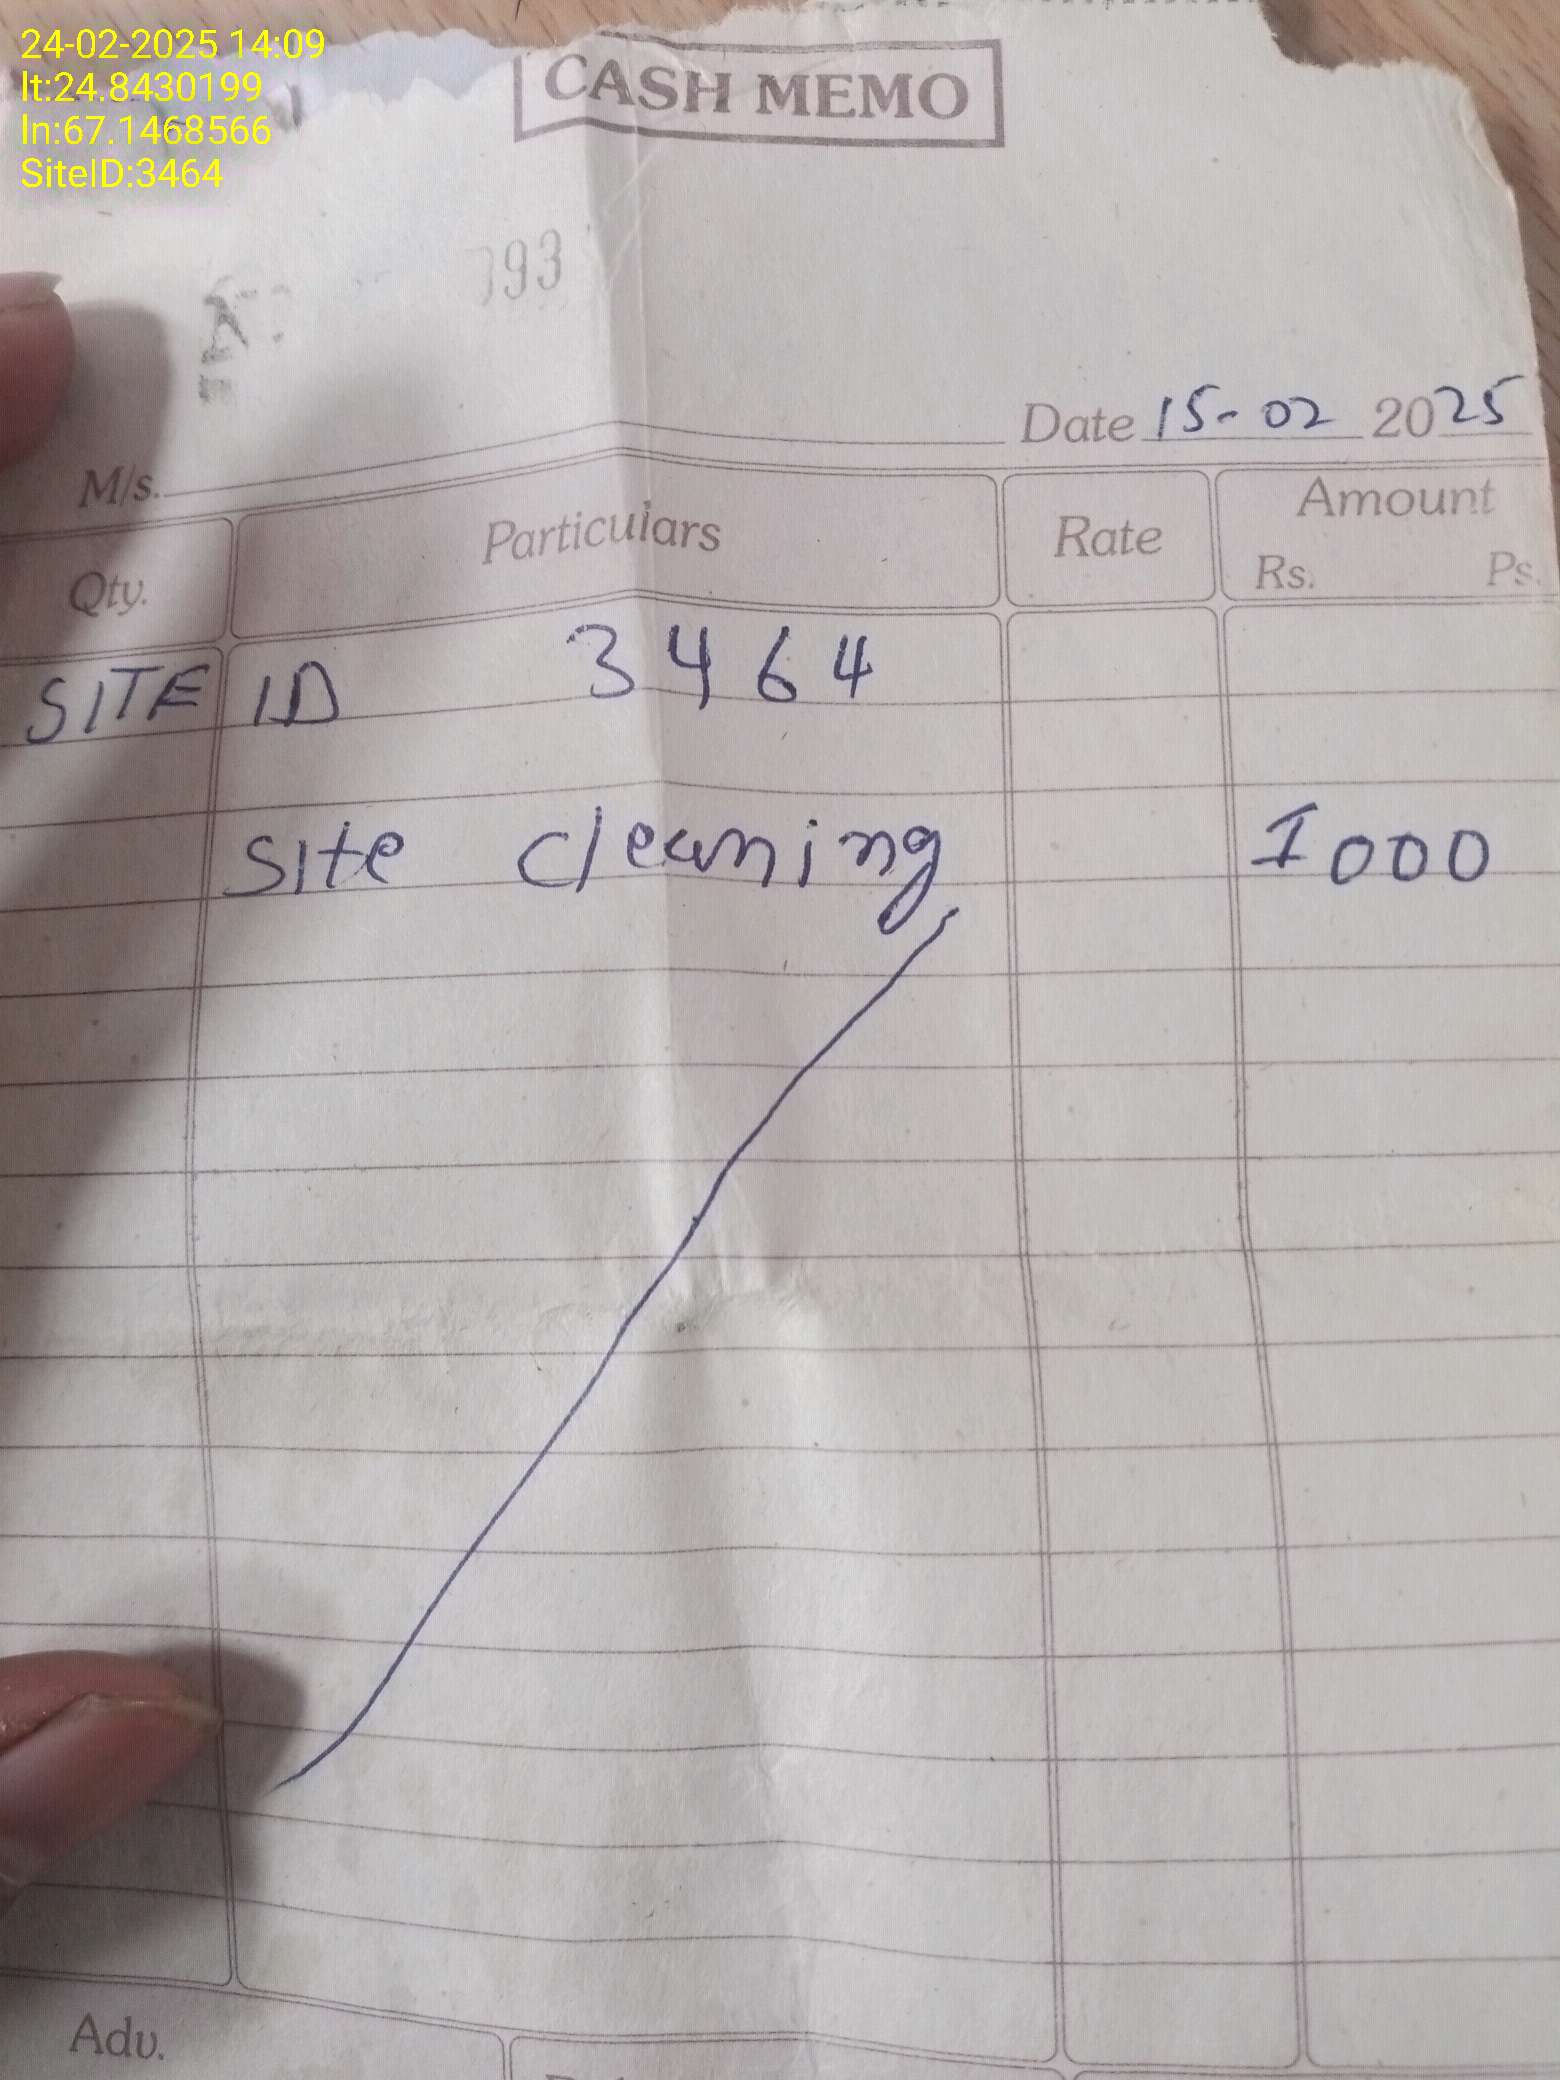 24-02-2025 14:09
lt:24.8430199
ln:67.1468566
SiteID:3464
CASH MEMO
793
Date 15-02 2025
M/s.
Qty. Particulars Rate Amount
Rs. Ps.
SITE ID 3464
Site cleaning 1000
Adv.